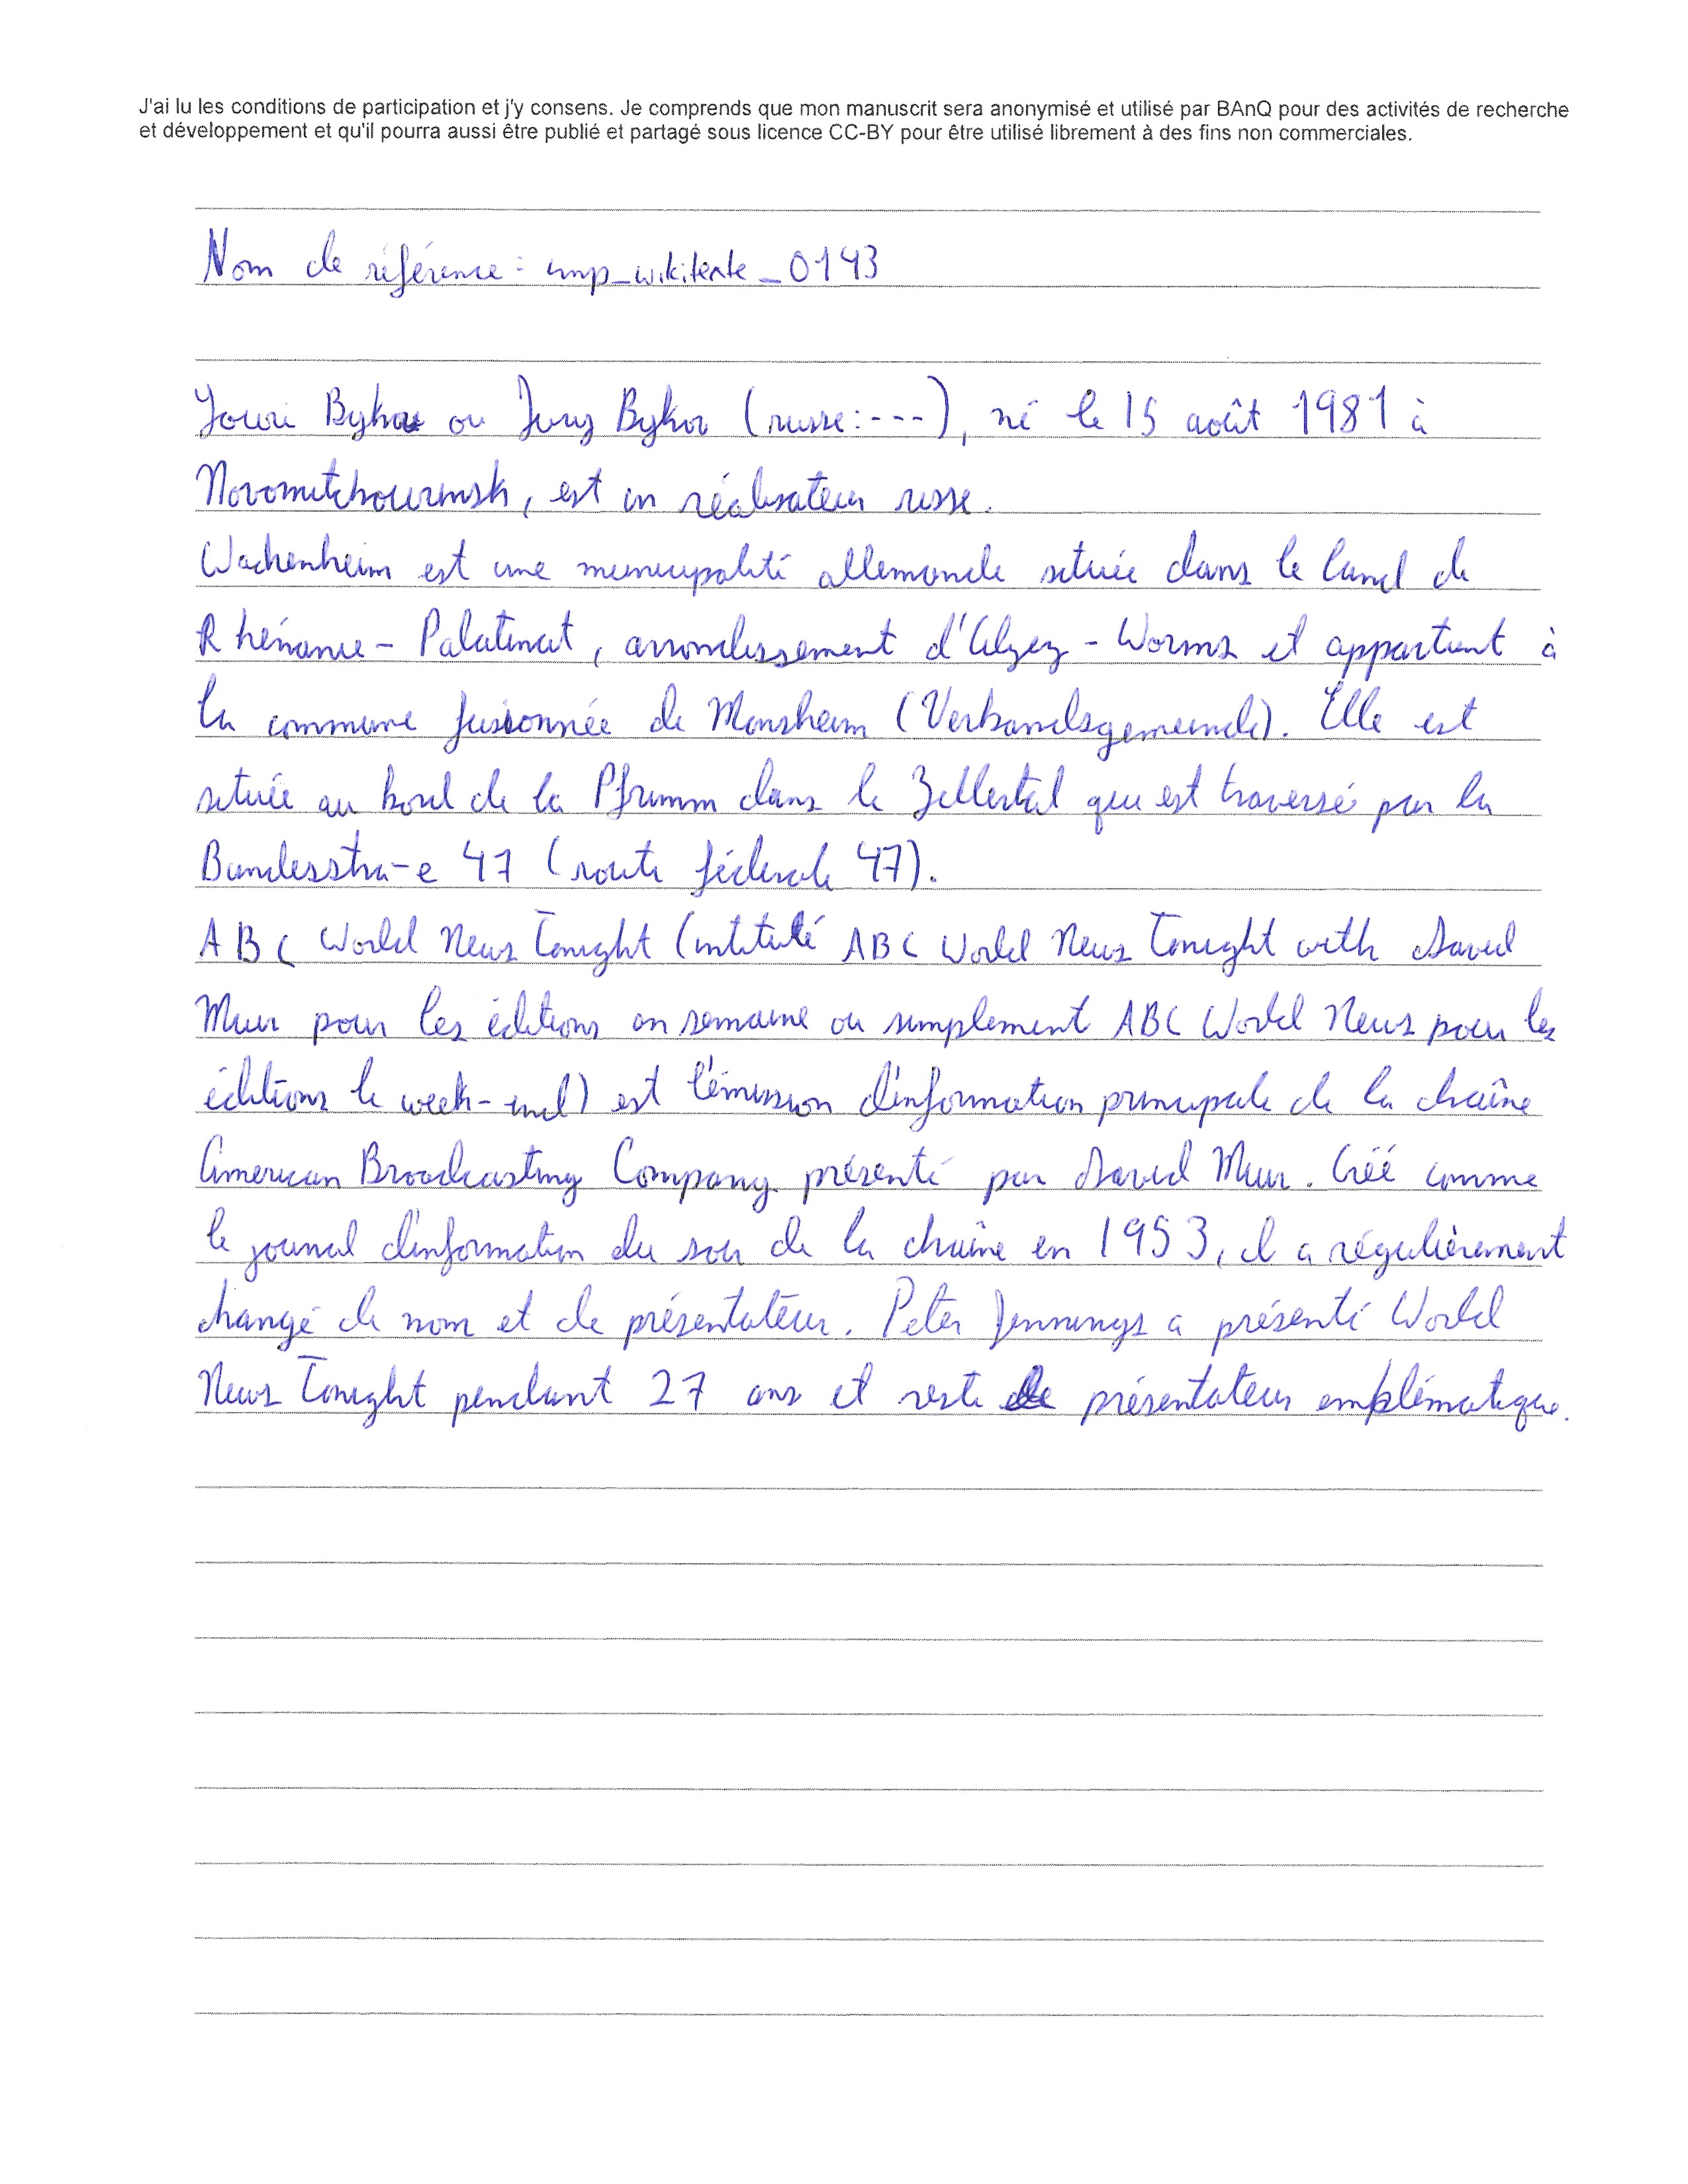 J'ai lu les conditions de participation et j'y consens. Je comprends que mon manuscrit sera anonymisé et utilisé par BAnQ pour des activités de recherche
et développement et qu'il pourra aussi être publié et partagé sous licence CC-BY pour être utilisé librement à des fins non commerciales.
Nom de référence : cmp_wikitexte_0143
Youri Bykov ou Jury Bykov (russe:---), né le 15 août 1981 à
Novomitchourinsk, est un réalisateur russe.
Wachenheim est une municipalité allemande située dans le land de
Rhénanie-Palatinat, arrondissement d'Alzey-Worms et appartient à
la commune fusionnée de Monsheim (Verbandsgemeinde). Elle est
située au bord de la Pfrimm dans le Zellertal qui est traversé par la
Bundesstra-e 47 (route fédérale 47).
ABC World News Tonight (intitulé ABC World News Tonight with David
Muir pour les éditions en semaine ou simplement ABC World News pour les
éditions le week-end) est l'émission d'information principale de la chaîne
American Broadcasting Company présenté par David Muir. Créé comme
le journal d'information du soir de la chaîne en 1953, il a régulièrement
changé de nom et de présentateur. Peter Jennings a présenté World
News Tonight pendant 27 ans et reste le présentateur emblématique.